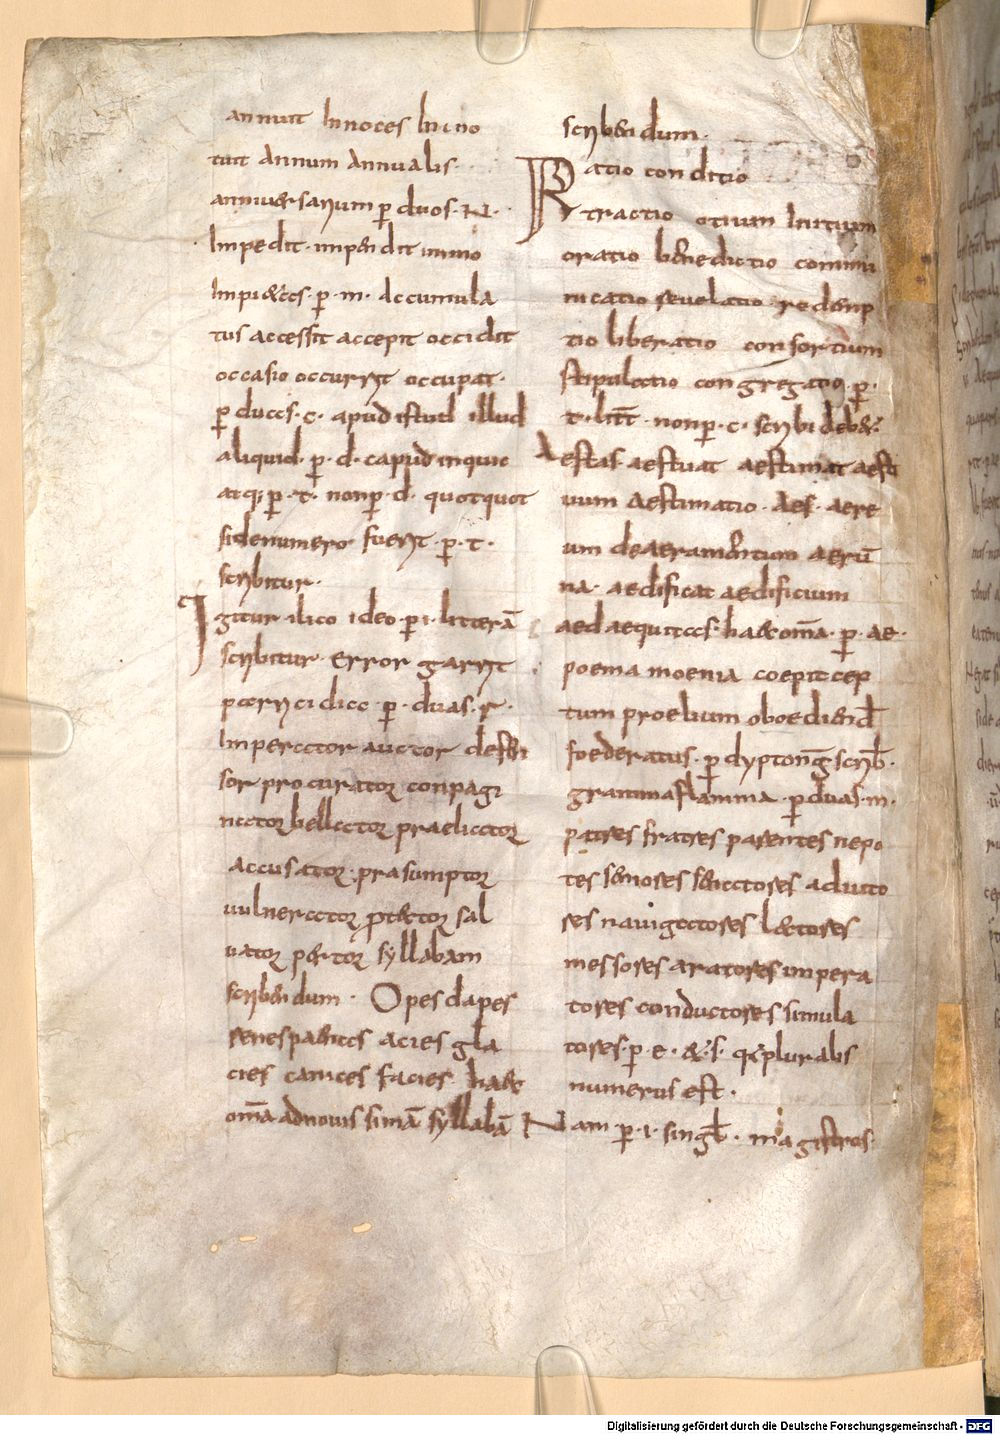 annuit Innoces Inno
tuit annum annualis·
anniuersarium ꝑ duos·N·
Impedit·impendit immo
Impietas·ꝑ·m·accumula
tus accessit accepit occidit
occasio occurrit occupat·
ꝑ duas·c· apud istud illud
aliquid·ꝑ·d·capud inquid
atq; ꝑ·t· non ꝑ·d· quotquot
si de numero fuerit·ꝑ·t·
scribitur·
Igitur·ilico ideo·ꝑ·i·litterā
scribitur· Error garrit
parricidiae·ꝑ·duas·r·
Imperator auctor defen
sor procurator conpagi
nator bellator praelictor
accusator·prasumptor
uulnerator protector sal
uator p&tor syllabam
scribendum· Opes dapes
senes parentes acies gla
cies canices facies· ha&
om̄a ad nouissimā syllabā
scribendum·
Ratio conditio
tractio otium Initium
oratio benedictio commu
nicatio reuelatio redemp
tio liberatio consortium
stipulatio congregatio·ꝑ·
t·litt̄·non ꝑ·c·scribi deb&·
Aestas·aestuat aestimat aest
uum aestimatio·aes·aere
um de aeramentum aerū
na·aedificat aedificium
aed aequitas·ha& om̄a·ꝑ·ae·
poema moenia coepit cep
tum proelium oboediend̄
foederatus·ꝑ dyptonḡ scrib̄·
gramma flamma·ꝑ duas·m·
patres fratres parentes nepo
tes senores senectores adiuto
res nauigatores l&tores
messores aratores impera
tores conductores simula
tores·ꝑ·e·&·s· q̄ pluralis
numerus est·
Nam·ꝑ·i·singl̄·magistros·
Digitalisierung gefördert durch die Deutsche Forschungsgemeinschaft - DFG